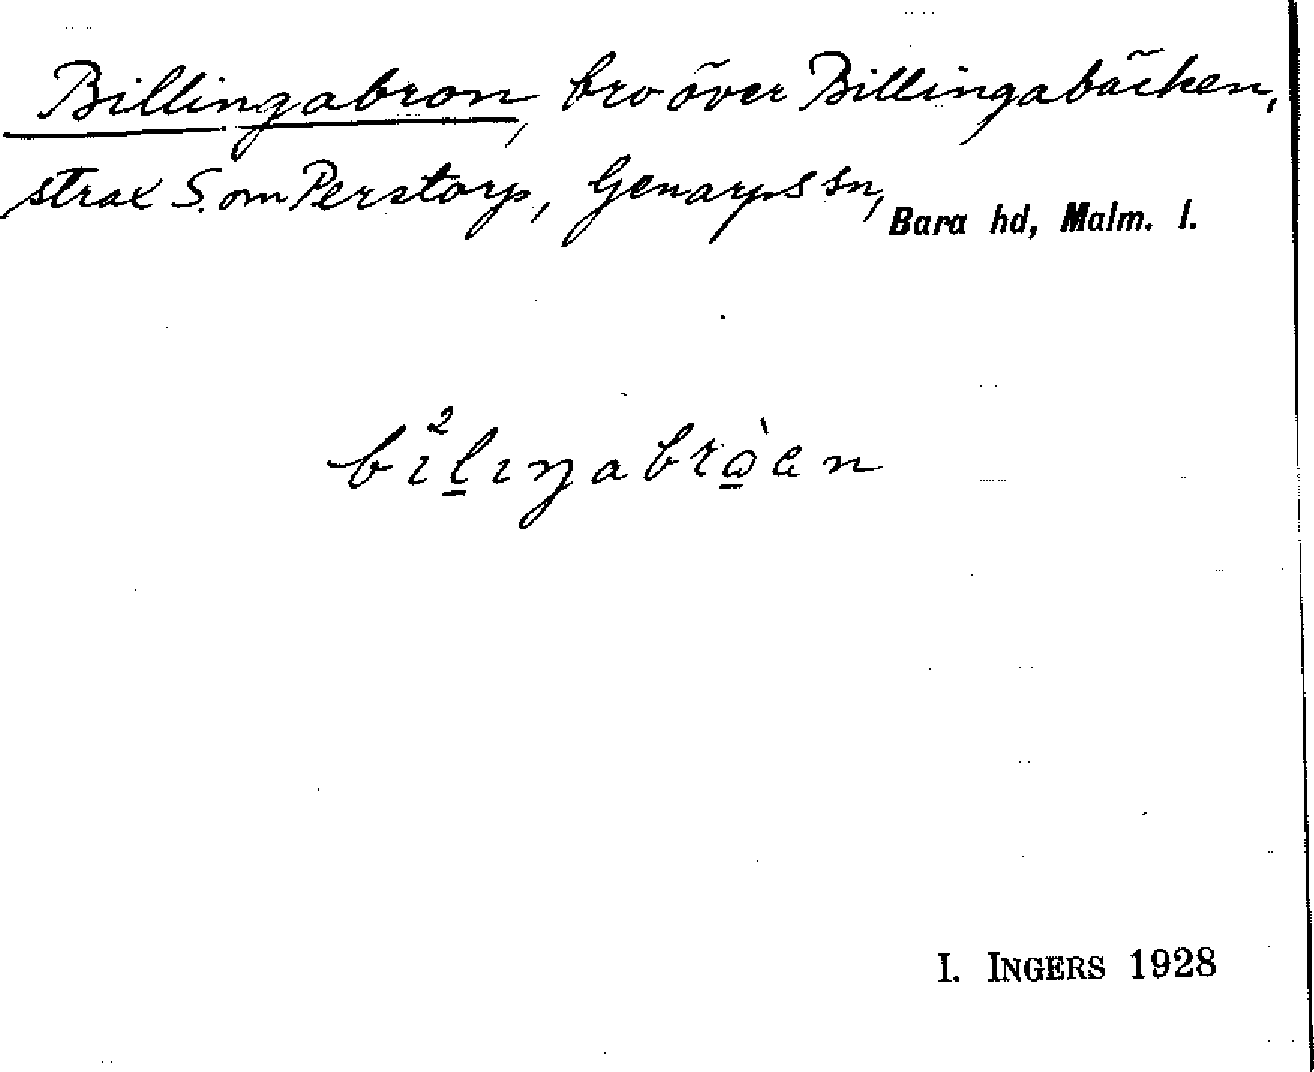 Billingabron, bro över Billingabäcken,
strax S. om Perstorp, Genarps sn, Bara hd, Malm. l.
bi²l̲iŋabrὰ̲en
I. INGERS 1928